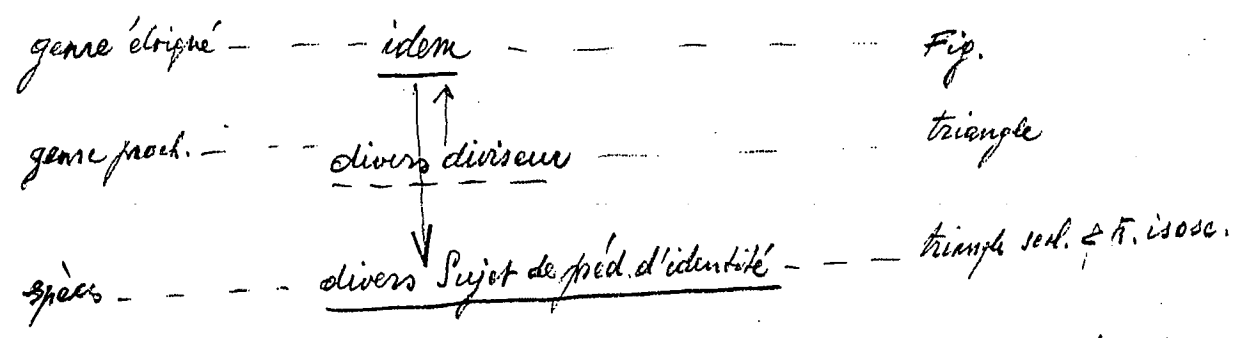 genre éloigné - - - idem - - - - - Fig.
genre proch. - - - divers diviseur - - - triangle
spèces - - - - divers Sujet de préd. d'identité - - - triangle scal. & tr. isosc.